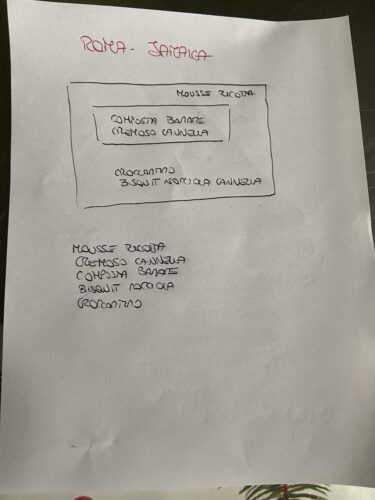 ROMA - JAMAICA
MOUSSE RICOTTA
COMPOSTA BANANE
CREMOSO CANNELLA
CROCCANTINO
BISQUIT NOCCIOLA CANNELLA
MOUSSE RICOTTA
CREMOSO CANNELLA
COMPOSTA BANANE
BISQUIT NOCCIOLA
CROCCANTINO